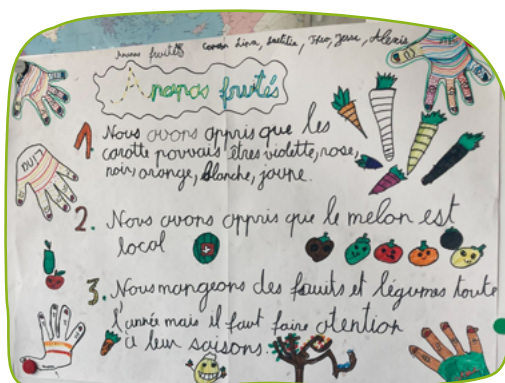 Ananas fruités Coren Lina, Laetitia, Théo, Jesse, Alexis
Ananas fruités
1 Nous avons appris que les
carotte pouvais êtres violette, rose,
noir, orange, blanche, jaune.
2. Nous avons appris que le melon est
local
3. Nous mangeons des fruits et légumes toute
l'année mais il faut faire otention
a leur saisons.